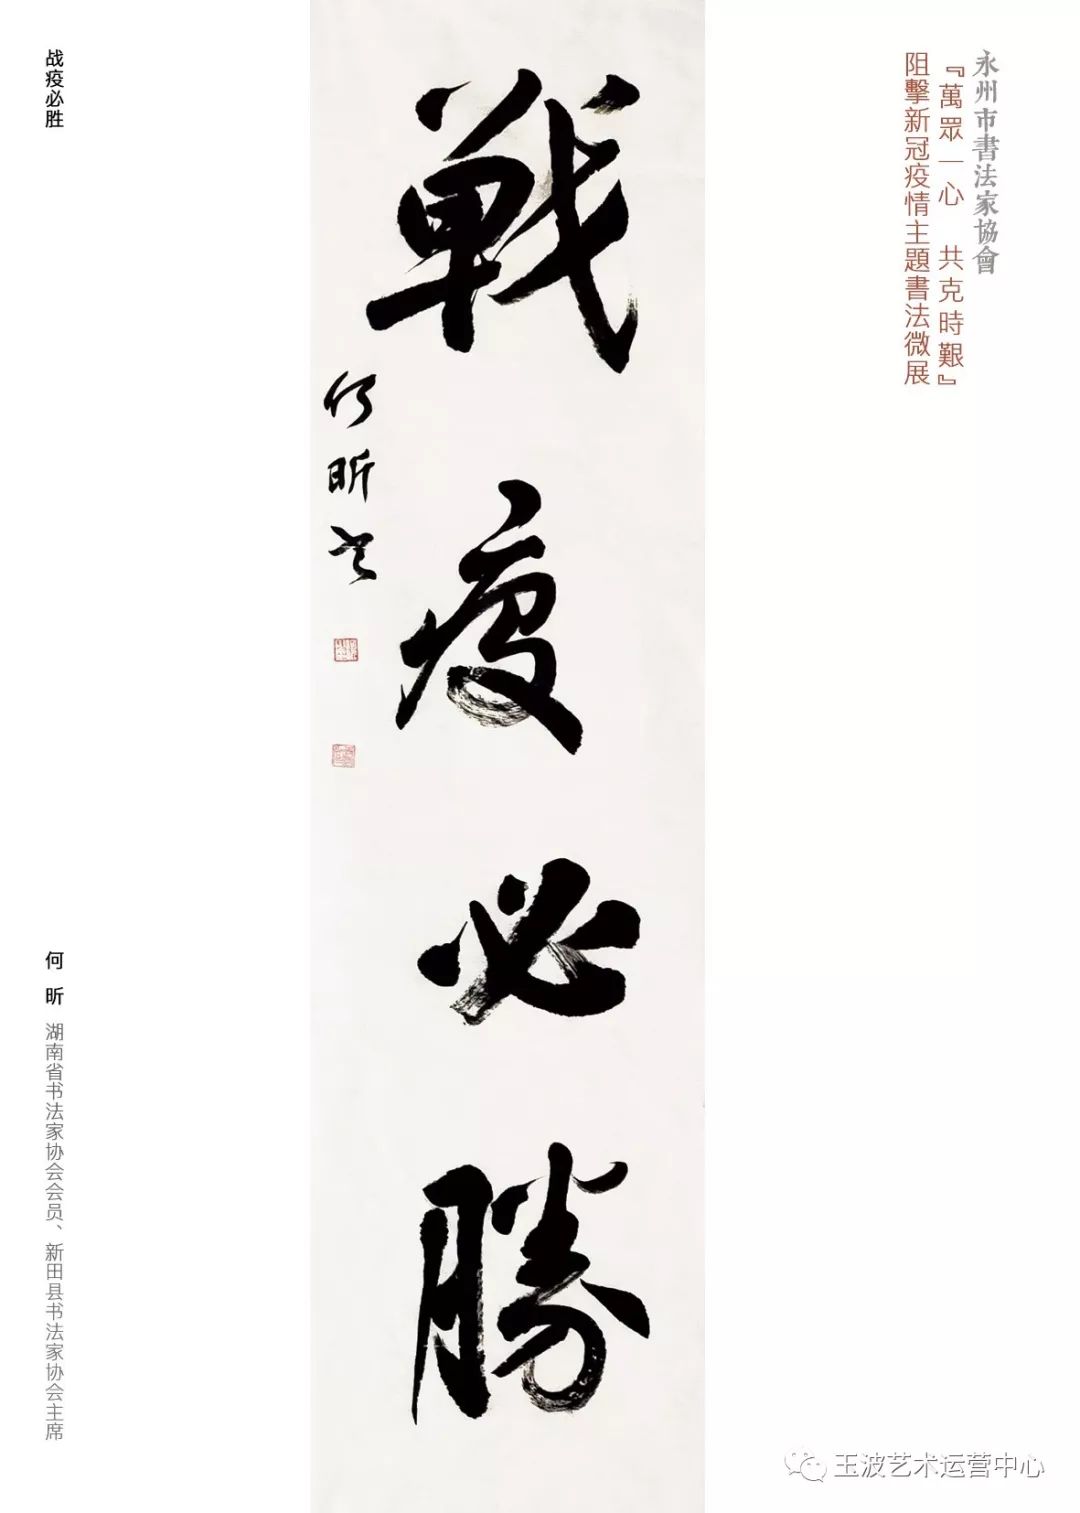 永州市書法家協會
『萬眾一心　共克時艱』
阻擊新冠疫情主題書法微展
戰疫必勝
何昕书
战疫必胜
何 昕 湖南省书法家协会会员、新田县书法家协会主席
玉波艺术运营中心